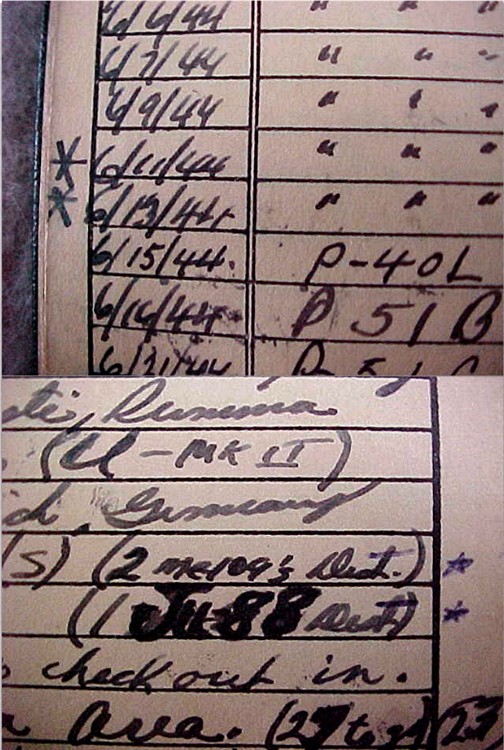 6/6/44 " "
6/7/44 " "
6/9/44 " "
* 6/11/44 " "
* 6/13/44 " "
6/15/44 P-40L
6/16/44 P 51 B
6/21/44
(U - MK II)
Germany
(S) (2 ME109's Dest.) *
(1 JU-88 Dest) *
check out in.
Area.